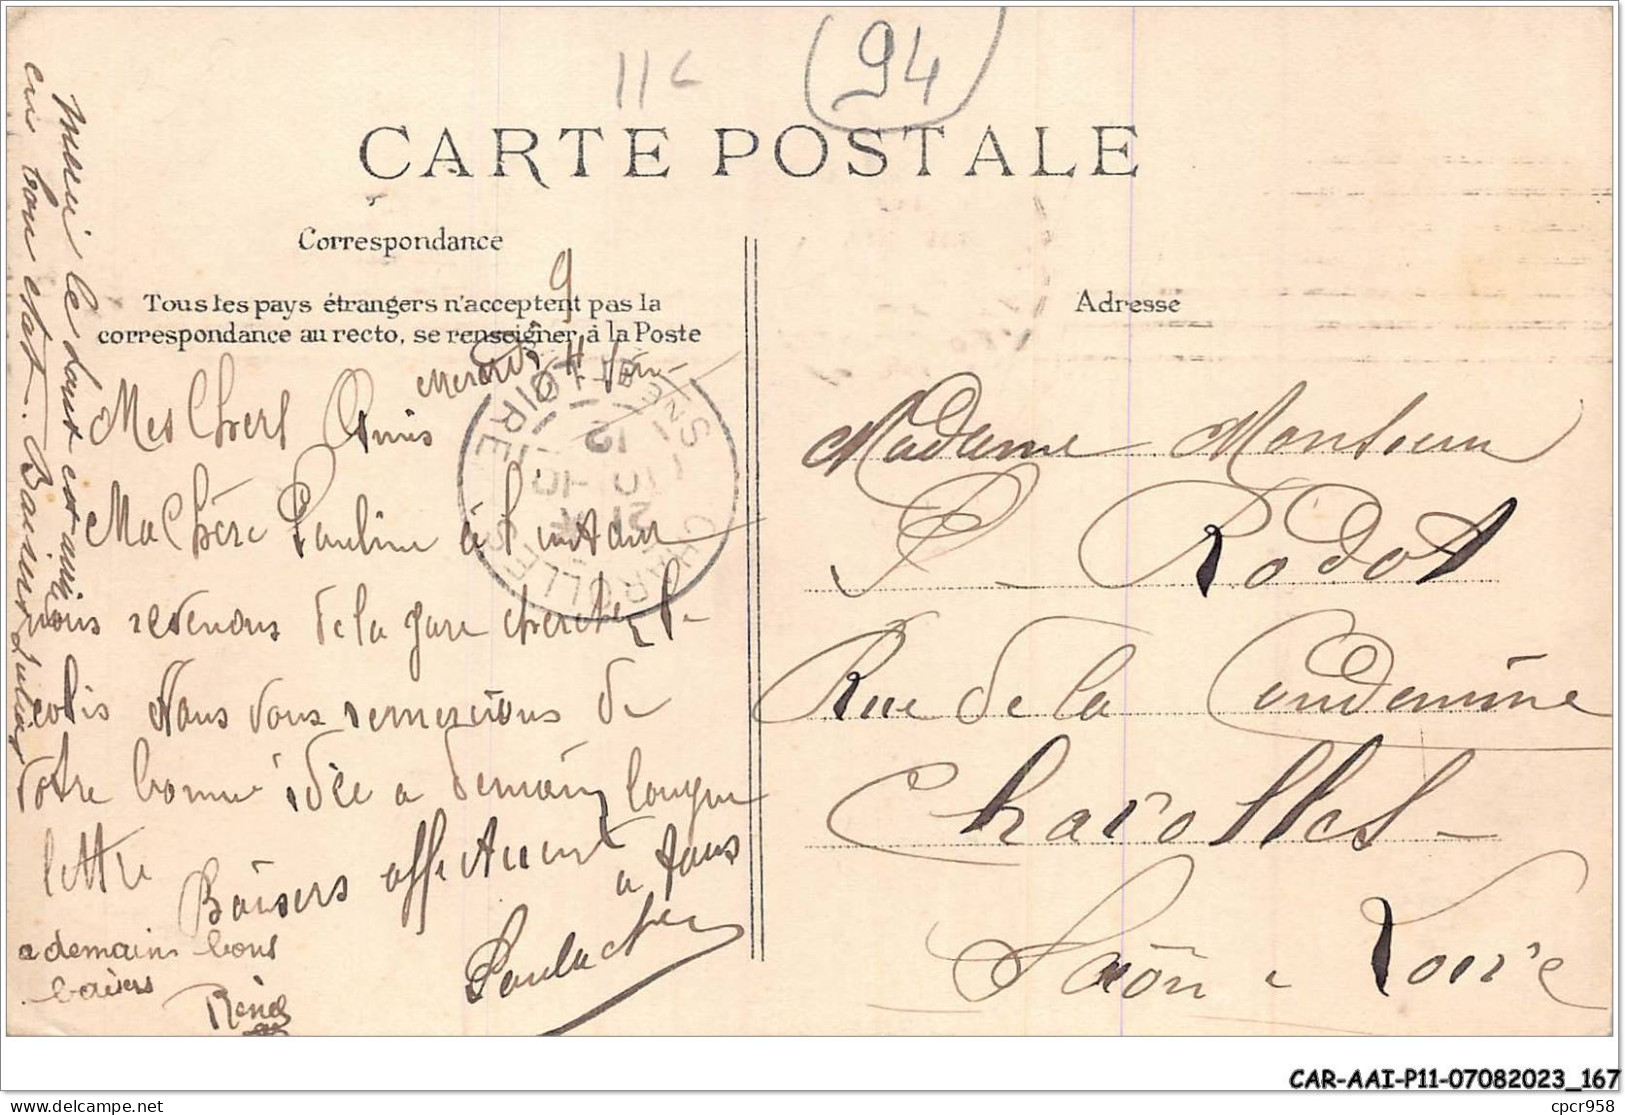 11c (94)
CARTE POSTALE
Correspondance
Tous les pays étrangers n'acceptent pas la
correspondance au recto, se renseigner à la Poste
Adresse
9
Mercredi
Mes Chers Amis
Ma Chère Pauline à l'instant
nous revenons de la gare chercher le
colis Nous vous remercions de
votre bonne idée a demain longue
lettre
Baisers affectueux
a tous
a demain bons
baisers
René
Merci le tout est arrivé
en bon état. Baisers Juliette
CHAROLLES
SNE ET LOIRE
12
10 -10
21
Madame Monsieur
P. Rodot
Rue de la Condemine
Charolles-
Saône - Loire
CAR-AAI-P11-07082023_167
delcampe.net
cpcr958